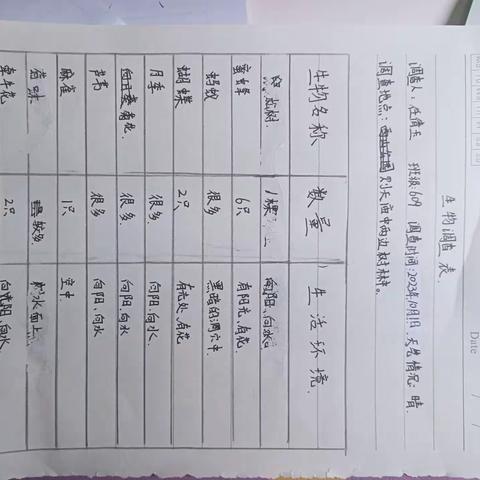 Date
生物调查表
调查人:任倩玉 班级:609 调查时间:2023年10月1日 天气情况:晴.
调查地点:则天庙中两边树林中。
生物名称 数量 生活环境
松树 1棵 向阳、向水
蜜蜂 6只 有阳光、有花.
蚂蚁 很多 黑暗的洞穴中.
蝴蝶 2只 有光处、有花
月季 很多. 向阳、向水.
菊花. 很多. 向阳、向水
芦苇 很多 向阳、向水
麻雀 1只 空中
较多. 水面上.
牵牛花 2只 向光阳、向水.